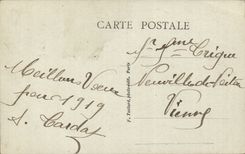 CARTE POSTALE
Meilleurs Voeux
pour 1919
S. Tardat
Mr Mme Crique
Neuville de Poitou
Vienne